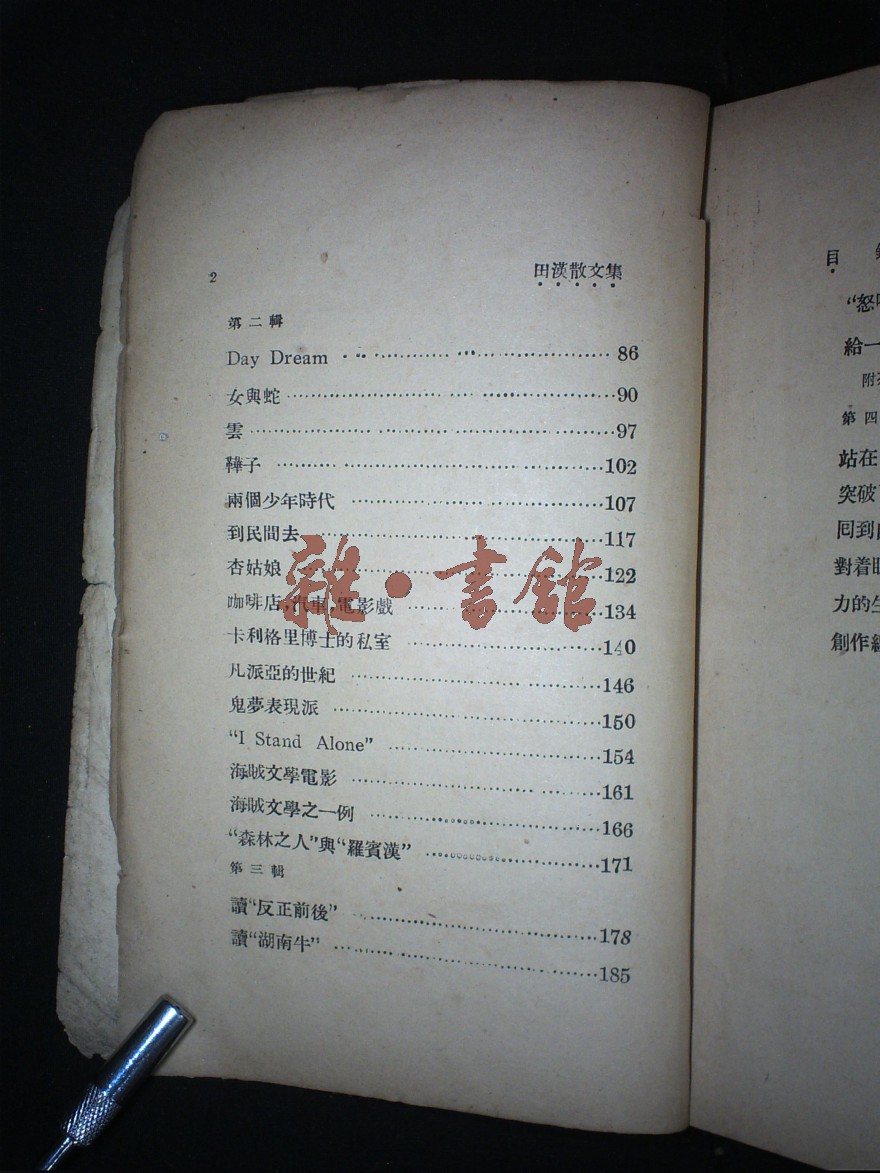 2 田漢散文集
第二輯
Day Dream ……………………………… 86
女與蛇 ……………………………… 90
雲 ……………………………… 97
鞾子 ……………………………… 102
兩個少年時代 ……………………………… 107
到民間去 ……………………………… 117
杏姑娘 ……………………………… 122
咖啡店,汽車,電影戲 ……………………………… 134
卡利格里博士的私室 ……………………………… 140
凡派亞的世紀 ……………………………… 146
鬼夢表現派 ……………………………… 150
“I Stand Alone” ……………………………… 154
海賊文學電影 ……………………………… 161
海賊文學之一例 ……………………………… 166
“森林之人”與“羅賓漢” ……………………………… 171
第三輯
讀“反正前後” ……………………………… 178
讀“湖南牛” ……………………………… 185
雜·書館
目
“怒
給一
附
第四
站在
突破
囘到
對着
力的生
創作